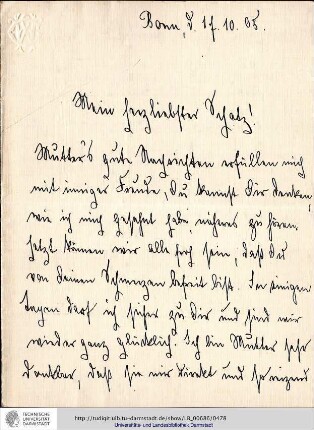 Bonn, d. 17. 10. 05.
Mein herzliebster Schatz!
Mutter's gute Nachrichten erfüllen mich
mit inniger Freude, Du kannst Dir denken,
wie ich mich gesehnt habe, näheres zu hören.
Jetzt können wir alle froh sein, daß Du
von Deinen Schmerzen befreit bist. In einigen
Tagen darf ich sicher zu Dir und sind wir
wieder ganz glücklich. Ich bin Mutter sehr
dankbar, daß sie mir direkt und so reizend
TECHNISCHE
UNIVERSITÄT
DARMSTADT
http://tudigit.ulb.tu-darmstadt.de/show/LB_00686/0478
Universitäts- und Landesbibliothek Darmstadt